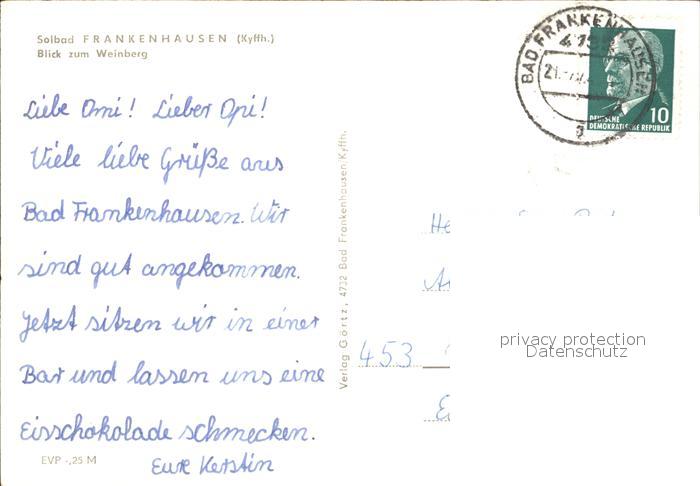 Solbad FRANKENHAUSEN (Kyffh.)
Blick zum Weinberg
Liebe Omi! Lieber Opi!
Viele liebe Grüße aus
Bad Frankenhausen. Wir
sind gut angekommen.
Jetzt sitzen wir in einer
Bar und lassen uns eine
Eisschokolade schmecken.
Eure Kerstin
EVP -,25 M
Verlag Görtz, 4732 Bad Frankenhausen/Kyffh.
BAD FRANKENHAUSEN
10
DEUTSCHE
DEMOKRATISCHE REPUBLIK
453
privacy protection
Datenschutz